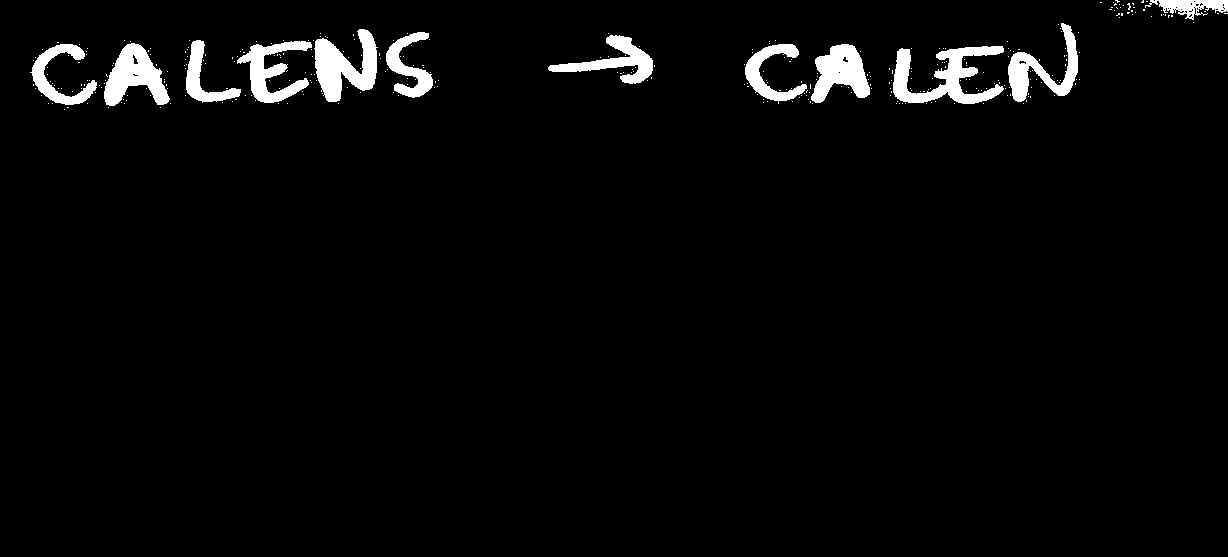 CALENS → CALEN